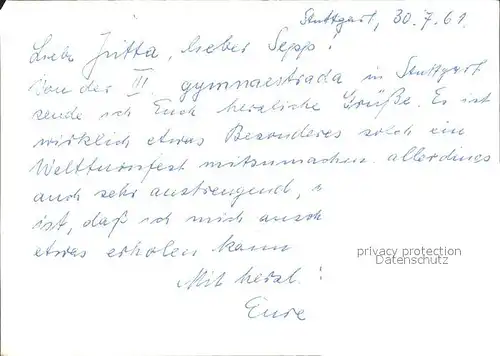 Stuttgart, 30.7.61.
Liebe Jutta, lieber Sepp!
Von der III. gymnaestrada in Stuttgart
sende ich Euch herzliche Grüße. Es ist
wirklich etwas Besonderes solch ein
Weltturnfest mitzumachen. allerdings
auch sehr anstrengend,
ist, daß ich mich auch
etwas erholen kann
Mit herzl.
Eure
privacy protection
Datenschutz